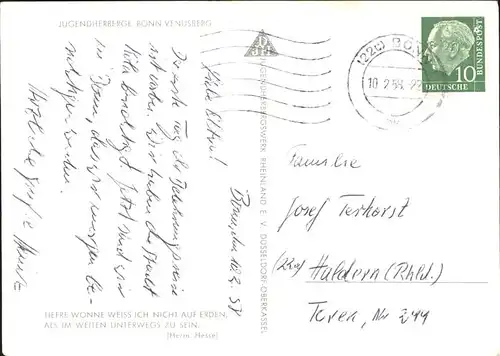 JUGENDHERBERGE BONN VENUSBERG
Bonn, den 10.2.58
Liebe Eltern!
Der erste Tag der
ist vorbei. Wir haben die Stadt
Köln besichtigt. Jetzt sind wir
in Bonn, das wir morgen be-
sichtigen werden.
Herzliche Grüße
TIEFRE WONNE WEISS ICH NICHT AUF ERDEN,
ALS IM WEITEN UNTERWEGS ZU SEIN.
(Herm. Hesse)
JUGENDHERBERGSWERK RHEINLAND E. V. DÜSSELDORF-OBERKASSEL
(22c) BONN
10.2.58
10
DEUTSCHE
BUNDESPOST
Familie
Josef Terhorst
(22a) Haldern (Rhld.)
Nr 244